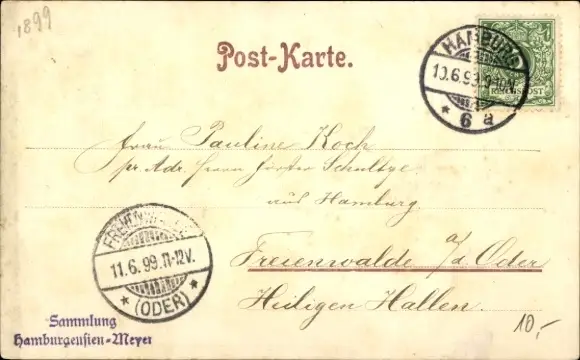 1899
Post-Karte.
HAMBURG
10.6.99. 9-10V.
* 6 a
REICHSPOST
Frau Pauline Koch
pr. Adr. Herrn Förster Schultze
aus Hamburg.
Freienwalde a/d Oder
Heiligen Hallen.
FREIENWALDE
11.6.99. 11-12V.
* (ODER) *
Sammlung
Hamburgensien-Meyer
10,-